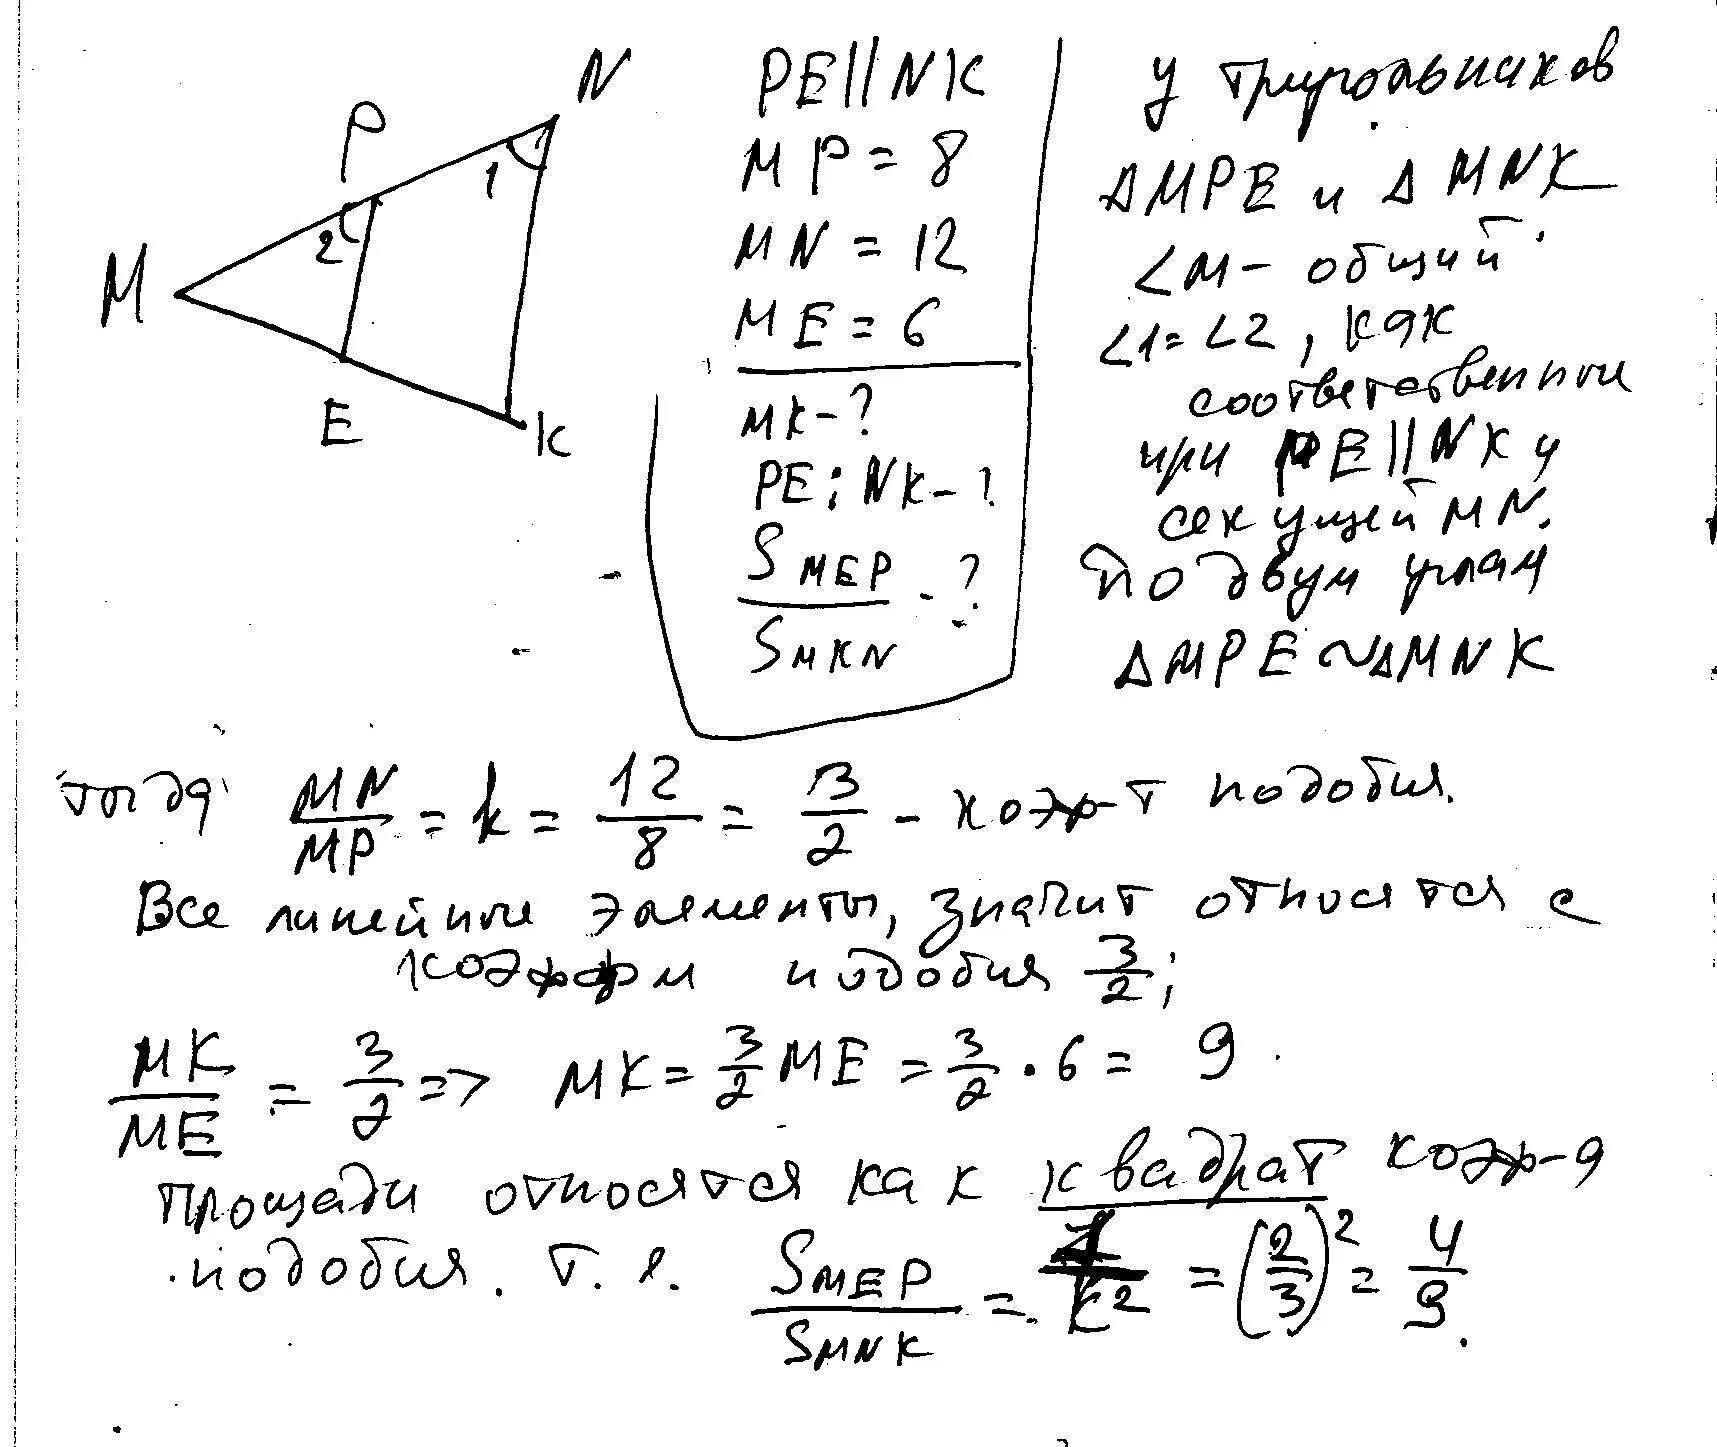 M P N E K 1 2
PE||NK
MP = 8
MN = 12
ME = 6
MK - ?
PE : NK - ?
S MEP / S MKN - ?
У треугольников
ΔMPE и ΔMNK
∠M - общий
∠1 = ∠2, как
соответственные
при PE||NK и
секущей MN.
По двум углам
ΔMPE ~ ΔMNK
тогда MN/MP = k = 12/8 = 3/2 - коэф-т подобия.
Все линейные элементы, значит относятся с
коэффи подобия 3/2;
MK/ME = 3/2 => MK = 3/2 ME = 3/2 · 6 = 9.
Площади относятся как квадрат коэф-а
подобия. т. е. S MEP / S MNK = 1/k² = (2/3)² = 4/9.